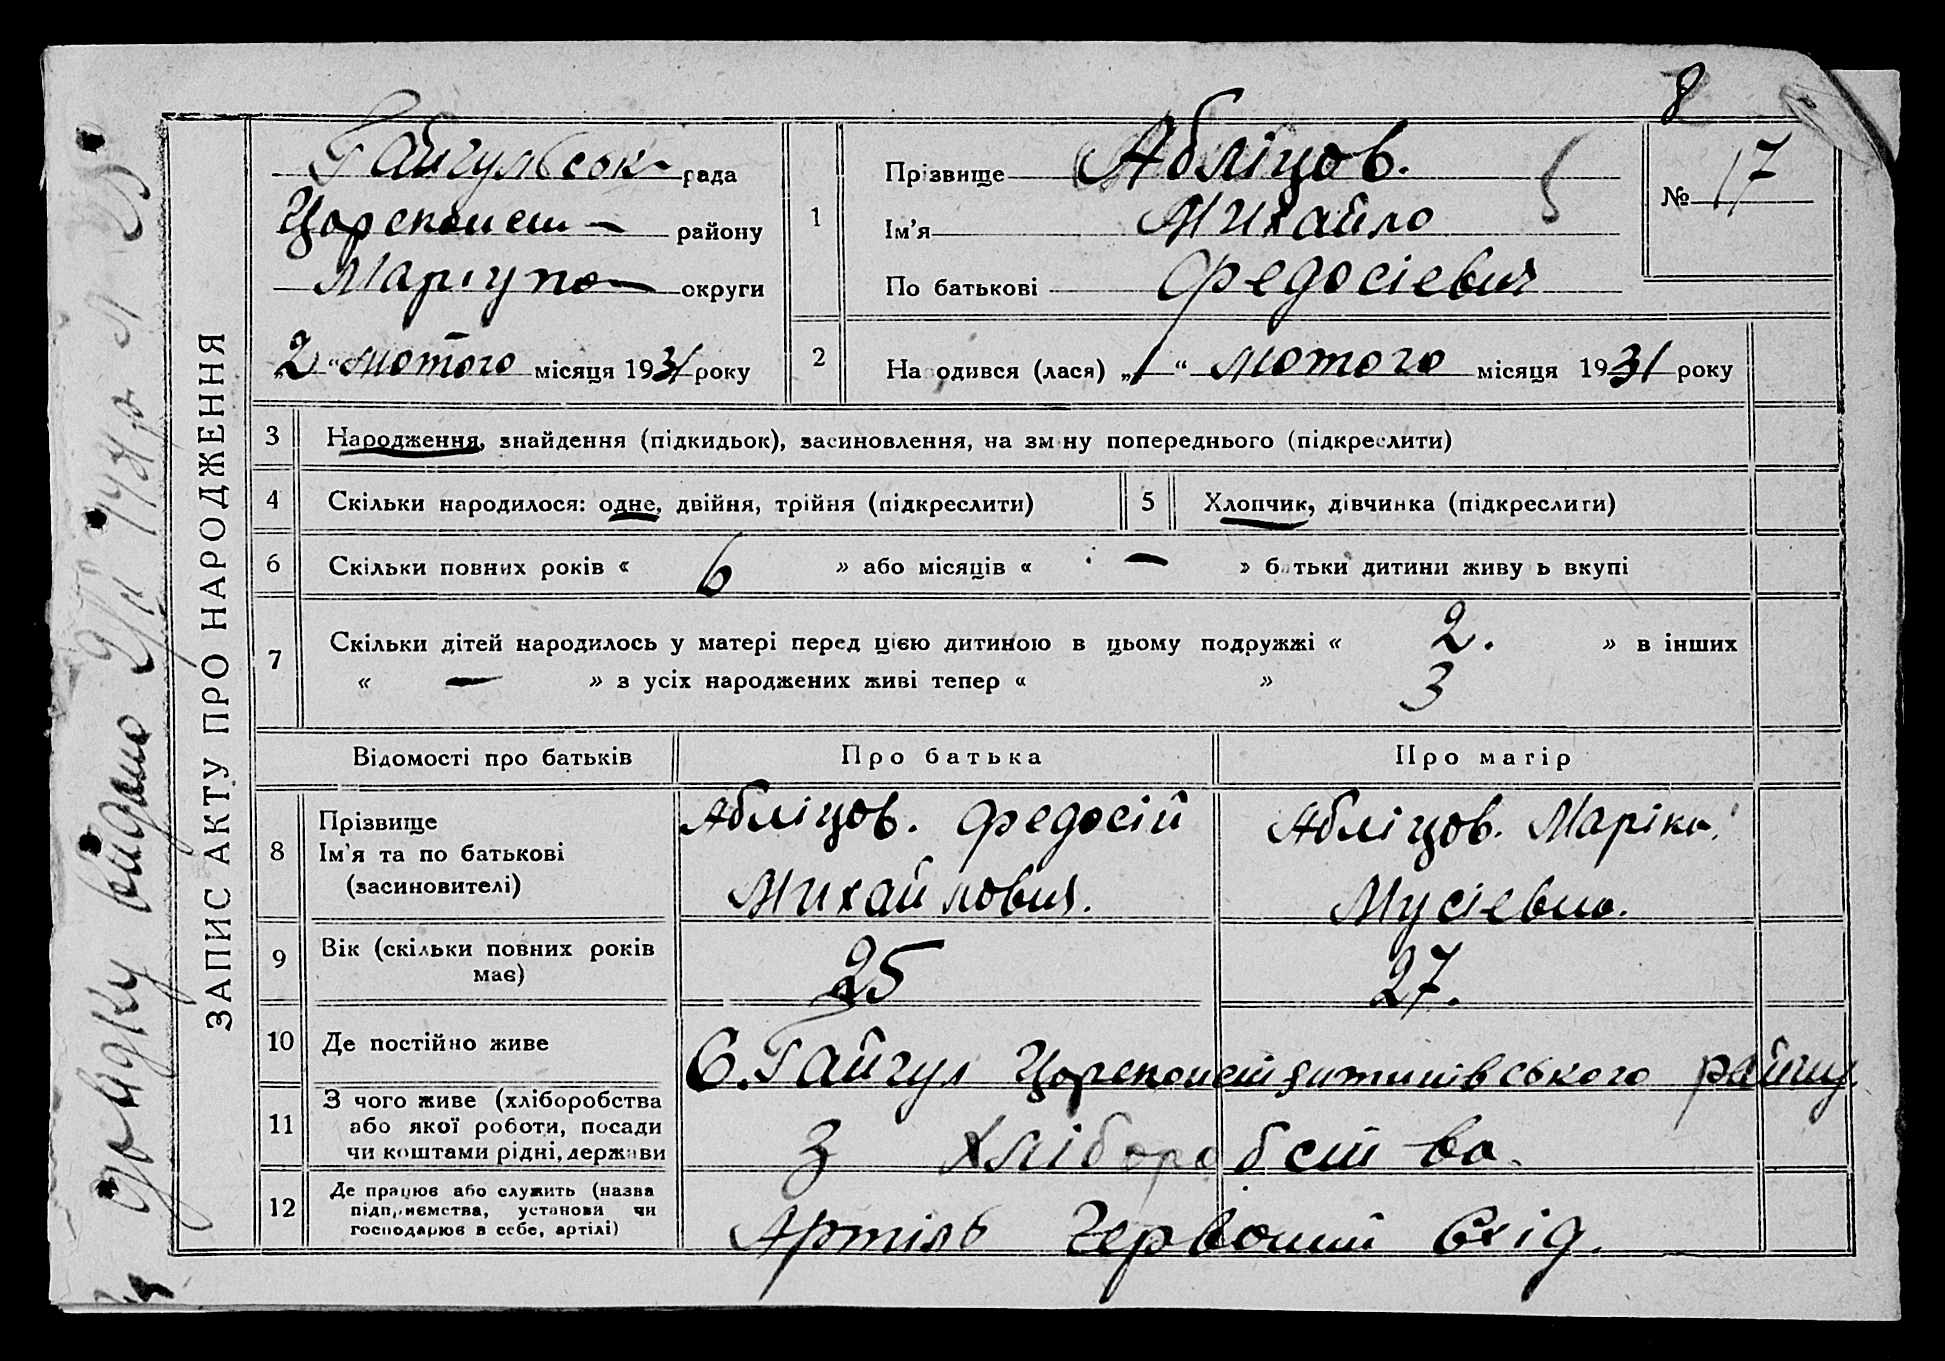 8
Гайгульськ рада
Прізвище Абліцов.
№ 17
району
1
Ім'я Михайло
Маріупо— округи
По батькові Федосієвич
„2“ лютого місяця 1931 року
2
Народився (лася) „1“ лютого місяця 1931 року
ЗАПИС АКТУ ПРО НАРОДЖЕННЯ
3 Народження, знайдення (підкидьок), засиновлення, на зміну попереднього (підкреслити)
4 Скільки народилося: одне, двійня, трійня (підкреслити)
5 Хлопчик, дівчинка (підкреслити)
6 Скільки повних років « 6 » або місяців « — » батьки дитини живуть вкупі
7 Скільки дітей народилось у матері перед цією дитиною в цьому подружжі « 2. » в інших
« — » з усіх народжених живі тепер « » 3
Відомості про батьків
Про батька
Про матір
8
Прізвище
Ім'я та по батькові
(засиновителі)
Абліцов. Федосій
Михайлович.
Абліцов. Маріка
Мусіевна.
9
Вік (скільки повних років
має)
25
27.
10 Де постійно живе
С. Гайгул району
11
З чого живе (хліборобства
або якої роботи, посади
чи коштами рідні, держави
З хліборобства.
12
Де працює або служить (назва
підприємства, установи чи
господарює в себе, артілі)
Артіль Червоний Схід.
видано